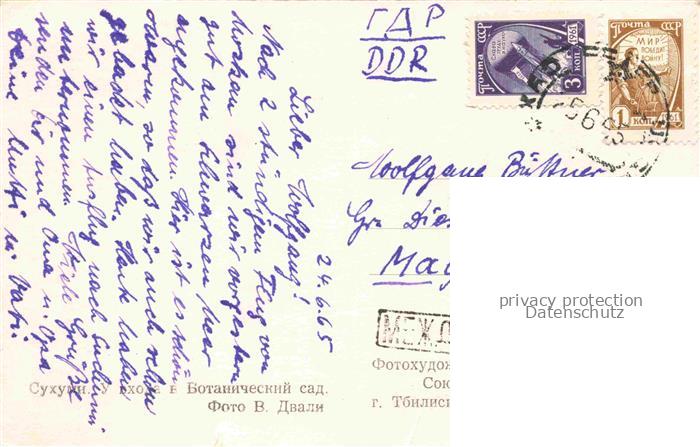 24.6.65
Lieber Wolfgang!
Nach 2 stündigem Flug von
Moskau sind wir vorgestern
gut am Schwarzen Meer
angekommen. Hier ist es schön
warm, so daß wir auch schon
gebadet haben. Heute haben
wir einen Ausflug nach Suchumi
unternommen. Viele Grüße
senden Dir und Oma u. Opa
Deine Mutti u. Vati.
ГДР
DDR
ПОЧТА СССР
1961
3
КОП
ПОЧТА СССР
МИР
ПОБЕДИТ
ВОЙНУ!
1
КОП.
1961
Wolfgang Büttner
Gr. Dies
Mag
МЕЖД
privacy protection
Datenschutz
Фотохудож
Сою
г. Тбилиси
Сухуми. У входа в Ботанический сад.
Фото В. Двали